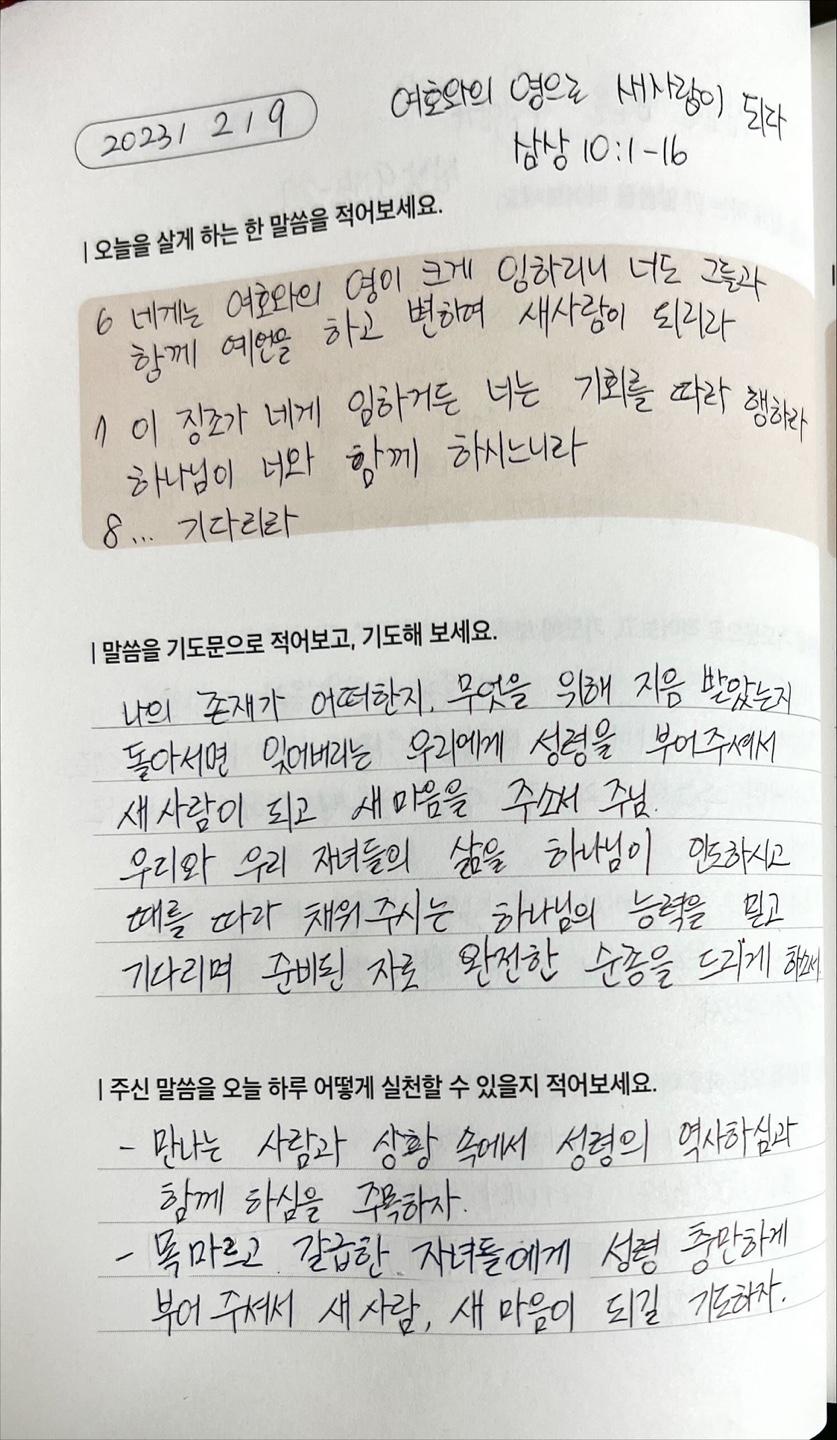 2023 / 2 / 9
여호와의 영으로 새사람이 되라
삼상 10:1-16
| 오늘을 살게 하는 한 말씀을 적어보세요.
6 네게는 여호와의 영이 크게 임하리니 너도 그들과
함께 예언을 하고 변하여 새사람이 되리라
7 이 징조가 네게 임하거든 너는 기회를 따라 행하라
하나님이 너와 함께 하시느니라
8... 기다리라
| 말씀을 기도문으로 적어보고, 기도해 보세요.
나의 존재가 어떠한지, 무엇을 위해 지음 받았는지
돌아서면 잊어버리는 우리에게 성령을 부어주셔서
새 사람이 되고 새 마음을 주소서 주님.
우리와 우리 자녀들의 삶을 하나님이 인도하시고
때를 따라 채워 주시는 하나님의 능력을 믿고
기다리며 준비된 자로 완전한 순종을 드리게 하소서
| 주신 말씀을 오늘 하루 어떻게 실천할 수 있을지 적어보세요.
- 만나는 사람과 상황 속에서 성령의 역사하심과
함께 하심을 주목하자.
- 목마르고 갈급한 자녀들에게 성령 충만하게
부어 주셔서 새 사람, 새 마음이 되길 기도하자.